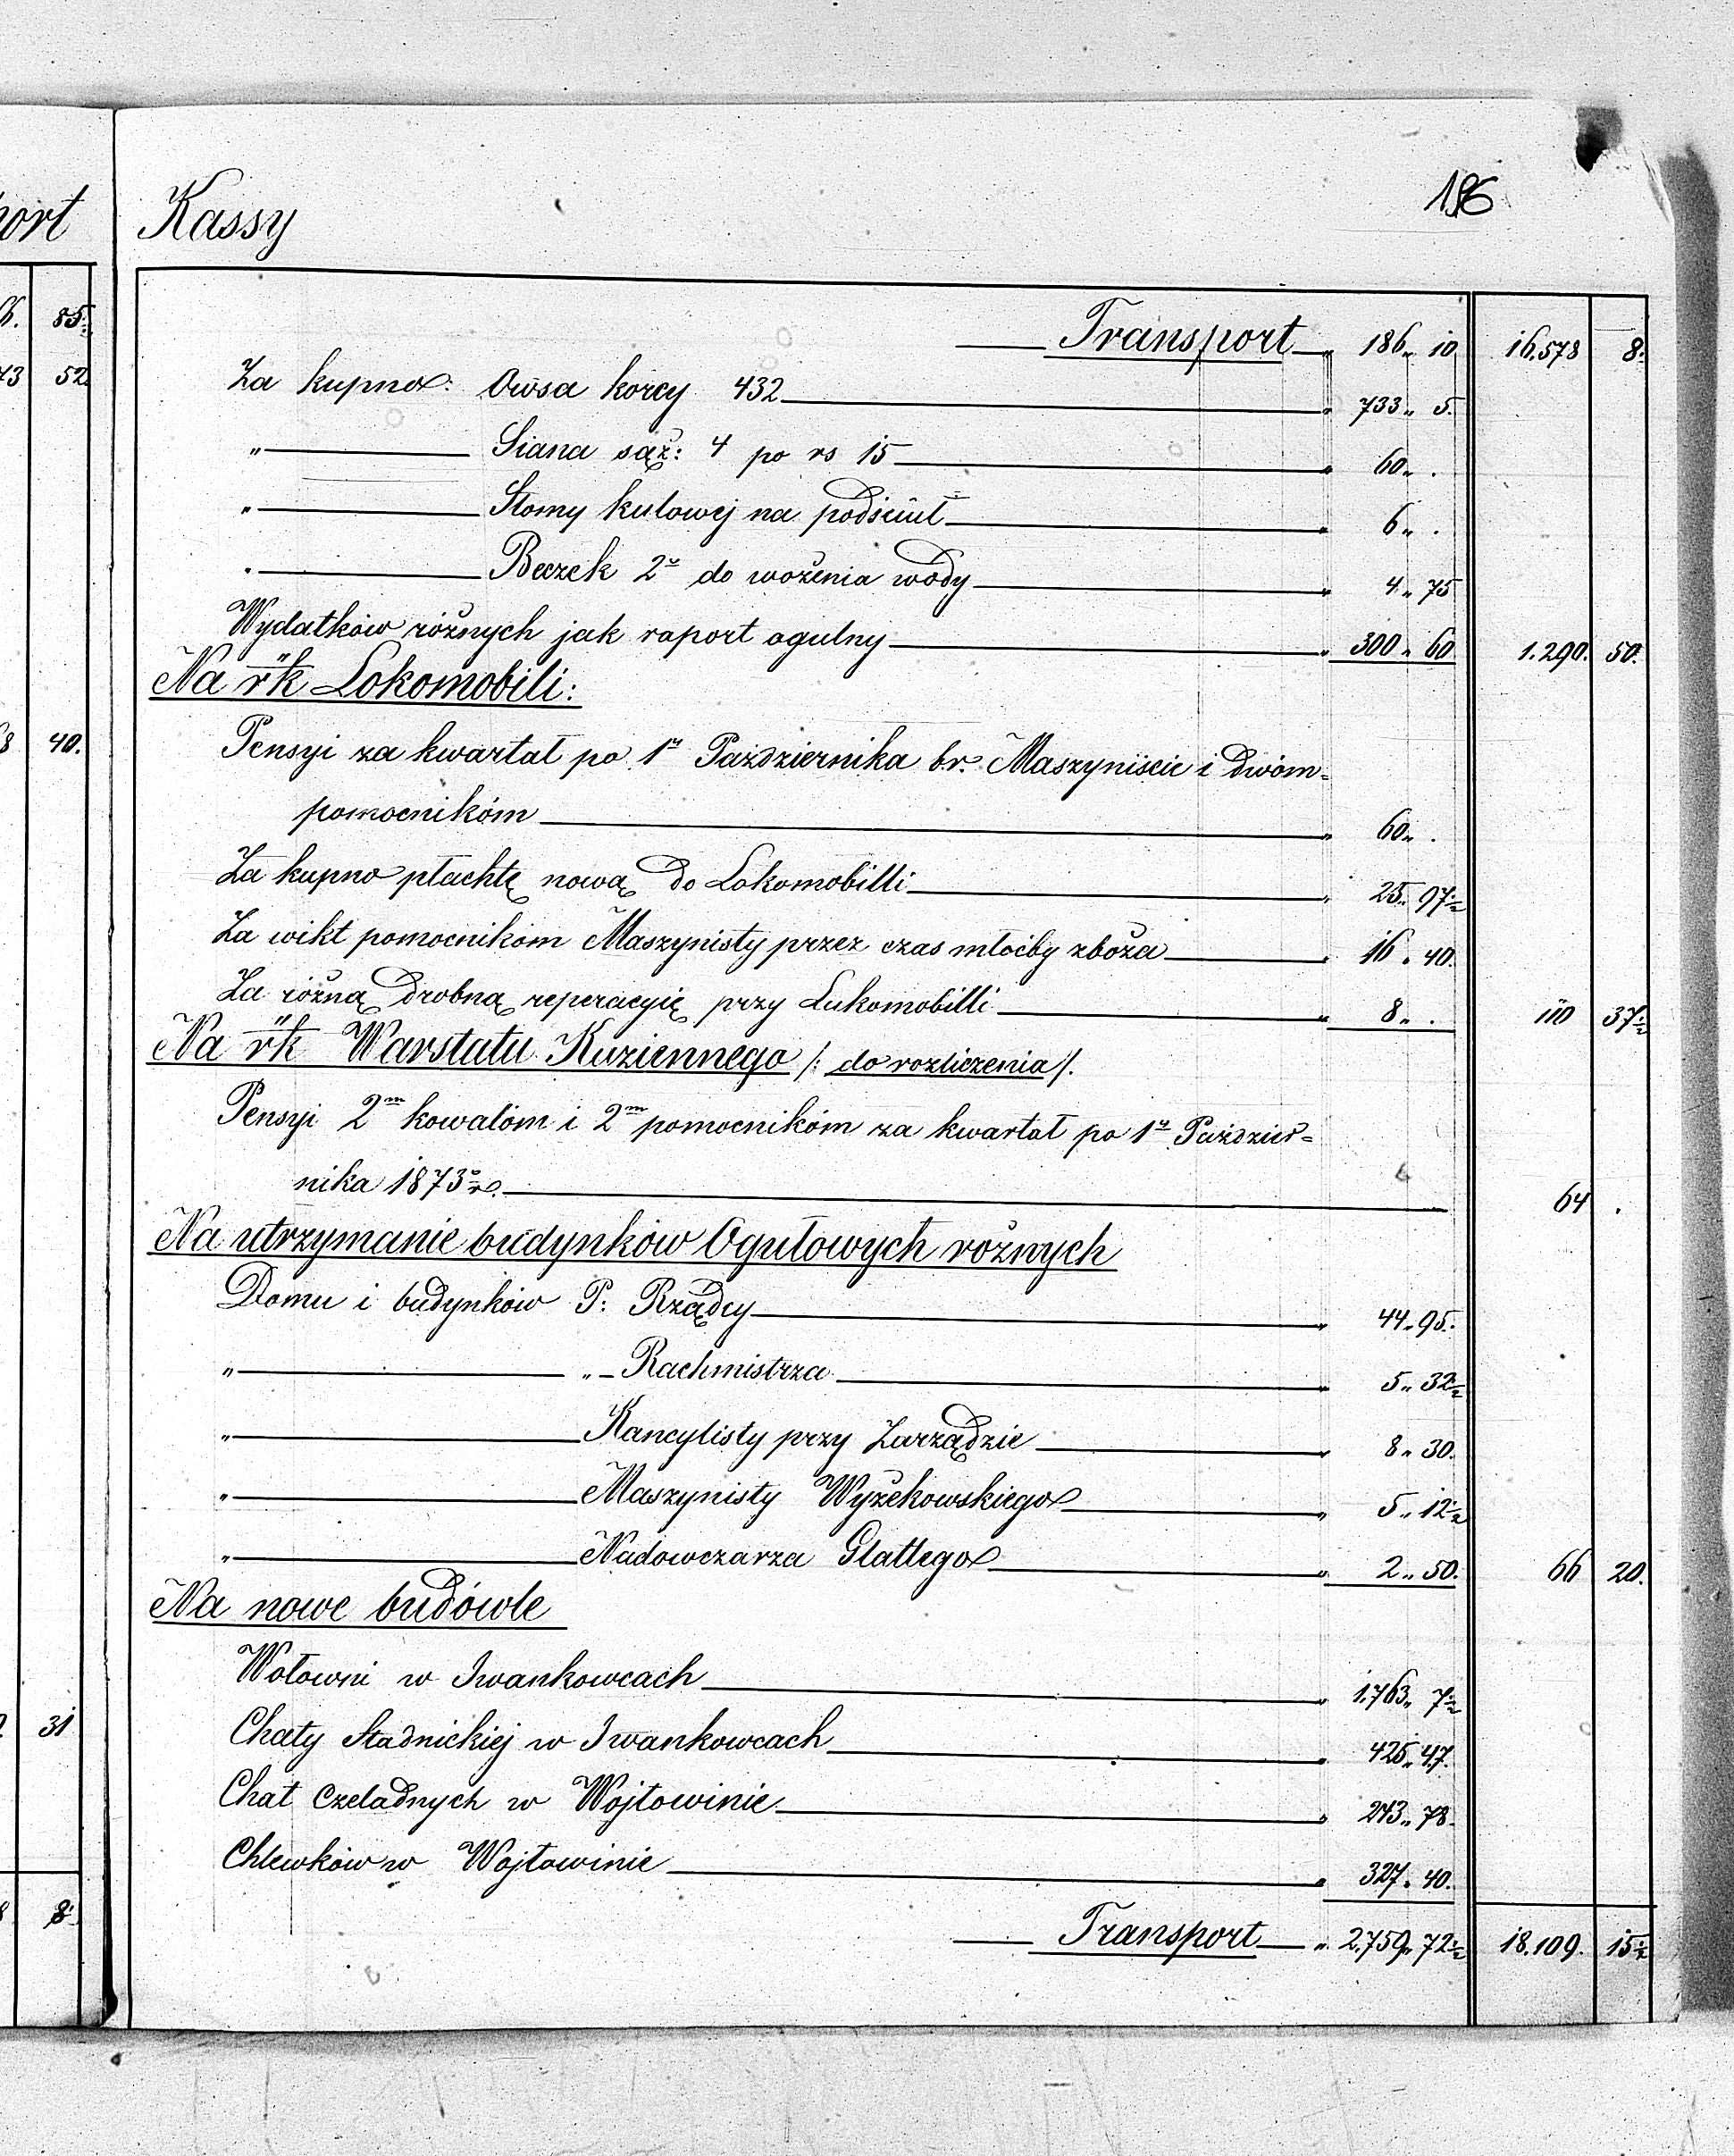 Kassy
196
Transport " 186 " 10 16.578 8.
Za kupno: Owsa korcy 432 " 733 " 5.
" Siana sąż: 4 po rs 15 " 60 " .
" Słomy kulowej na podściuł " 6 " .
" Beczek 2u do wożenia wody " 4 " 75
Wydatków różnych jak raport ogulny " 300 " 60 1.290. 50.
Na rk Lokomobili:
Pensyi za kwartał po 1u Października br. Maszyniście i dwóm=
pomocnikóm " 60 " .
Za kupno płachtę nową do Lokomobilli " 25 " 97½
Za wikt pomocnikom Maszynisty przez czas młoćby zboża " 16 " 40.
Za różną drobną reperacyię przy Lukomobilli " 8 " . 110 37½
Na rk Warstatu Kuziennego /: do rozliczenia /.
Pensyi 2m kowalóm i 2m pomocnikóm za kwartał po 1u Paździer=
nika 1873 r. 64 .
Na utrzymanie budynków Ogułowych różnych
Domu i budynków P: Rządcy " 44 " 95.
" " Rachmistrza " 5 " 32½
" Kancylisty przy Zarządzie " 8 " 30.
" Maszynisty Wyżekowskiego " 5 " 12½
" Nadowczarza Glattego " 2 " 50. 66 20.
Na nowe budówle
Wołowni w Iwankowcach " 1.763 " 7½
Chaty Stadnickiej w Iwankowcach " 425 " 47.
Chat Czeladnych w Wojtowinie " 243 " 78.
Chlewków w Wojtowinie " 327 " 40.
Transport " 2.759 " 72½ 18.109. 15½